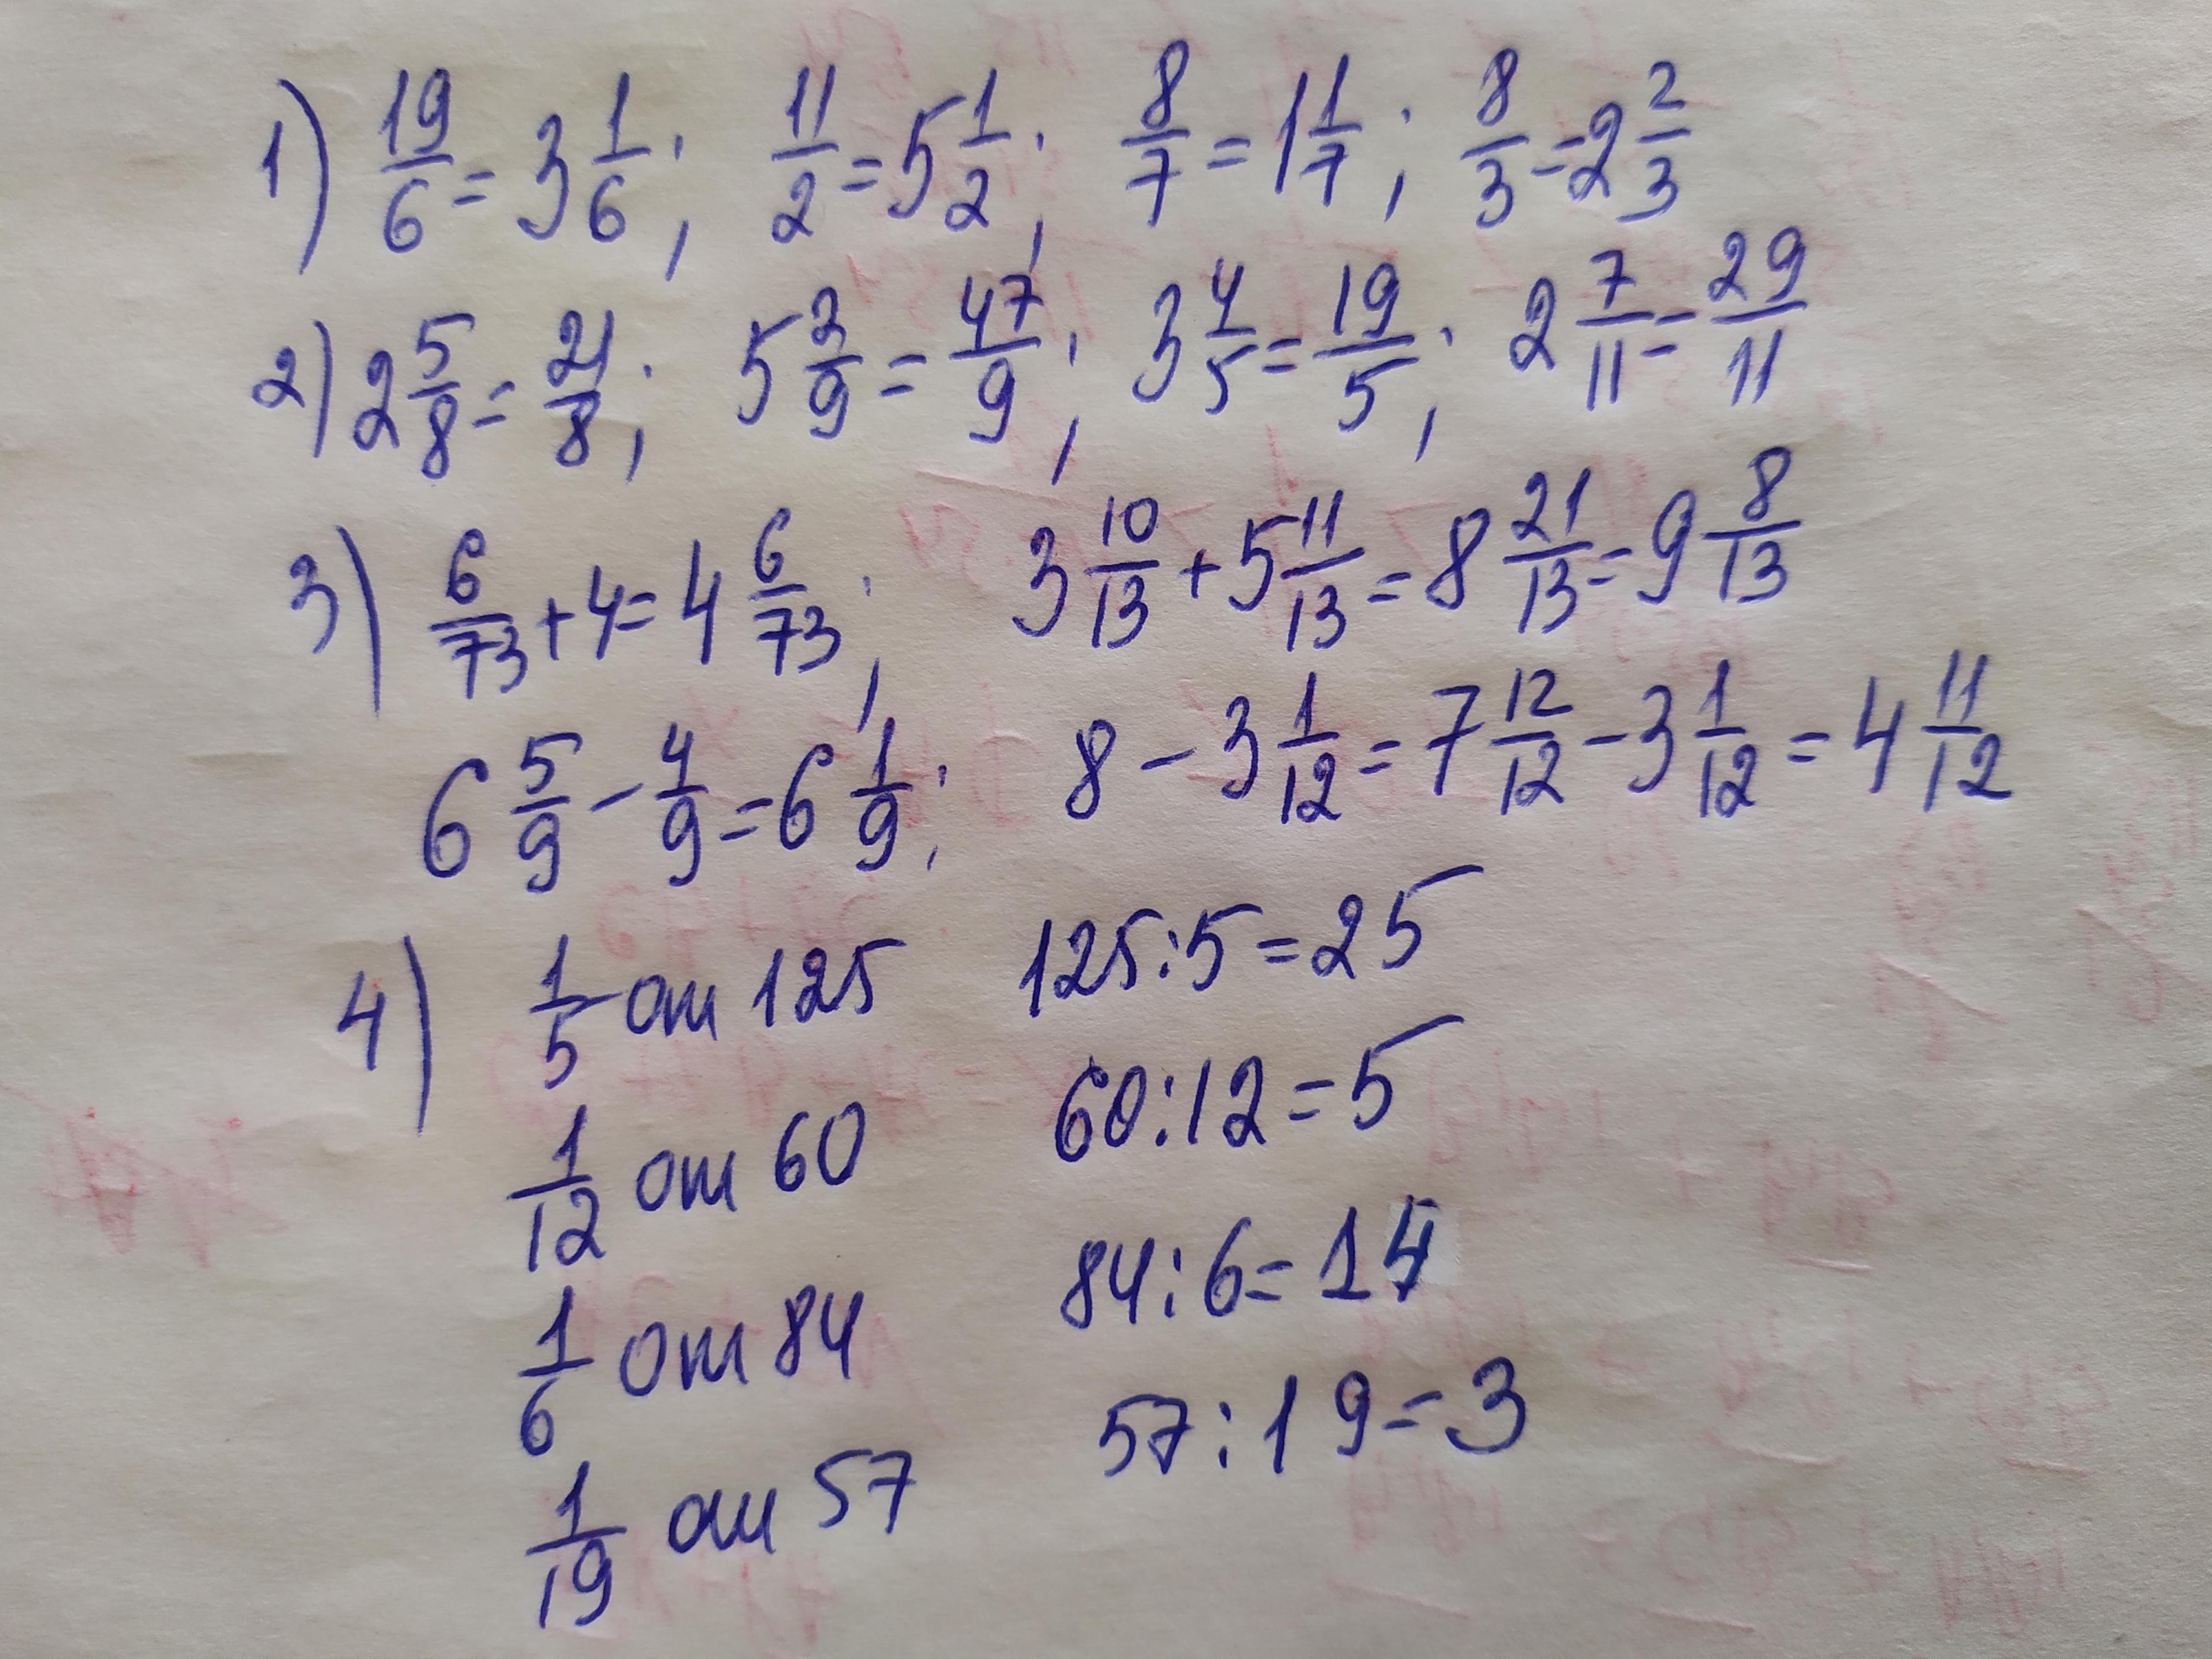 1) 19/6 = 3 1/6; 11/2 = 5 1/2; 8/7 = 1 1/7; 8/3 = 2 2/3
2) 2 5/8 = 21/8; 5 2/9 = 47/9; 3 4/5 = 19/5; 2 7/11 = 29/11
3) 6/73 + 4 = 4 6/73; 3 10/13 + 5 11/13 = 8 21/13 = 9 8/13
6 5/9 - 4/9 = 6 1/9; 8 - 3 1/12 = 7 12/12 - 3 1/12 = 4 11/12
4) 1/5 от 125 125:5=25
1/12 от 60 60:12=5
1/6 от 84 84:6=14
1/19 от 57 57:19=3